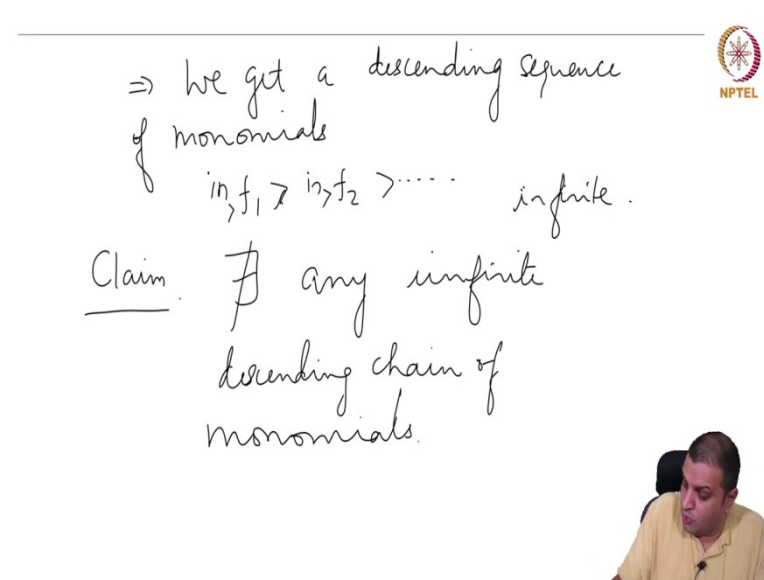 ⇒ We get a descending sequence
NPTEL
of monomials
in_> f_1 > in_> f_2 > ..... infinite.
Claim. ∄ any infinite
descending chain of
monomials.